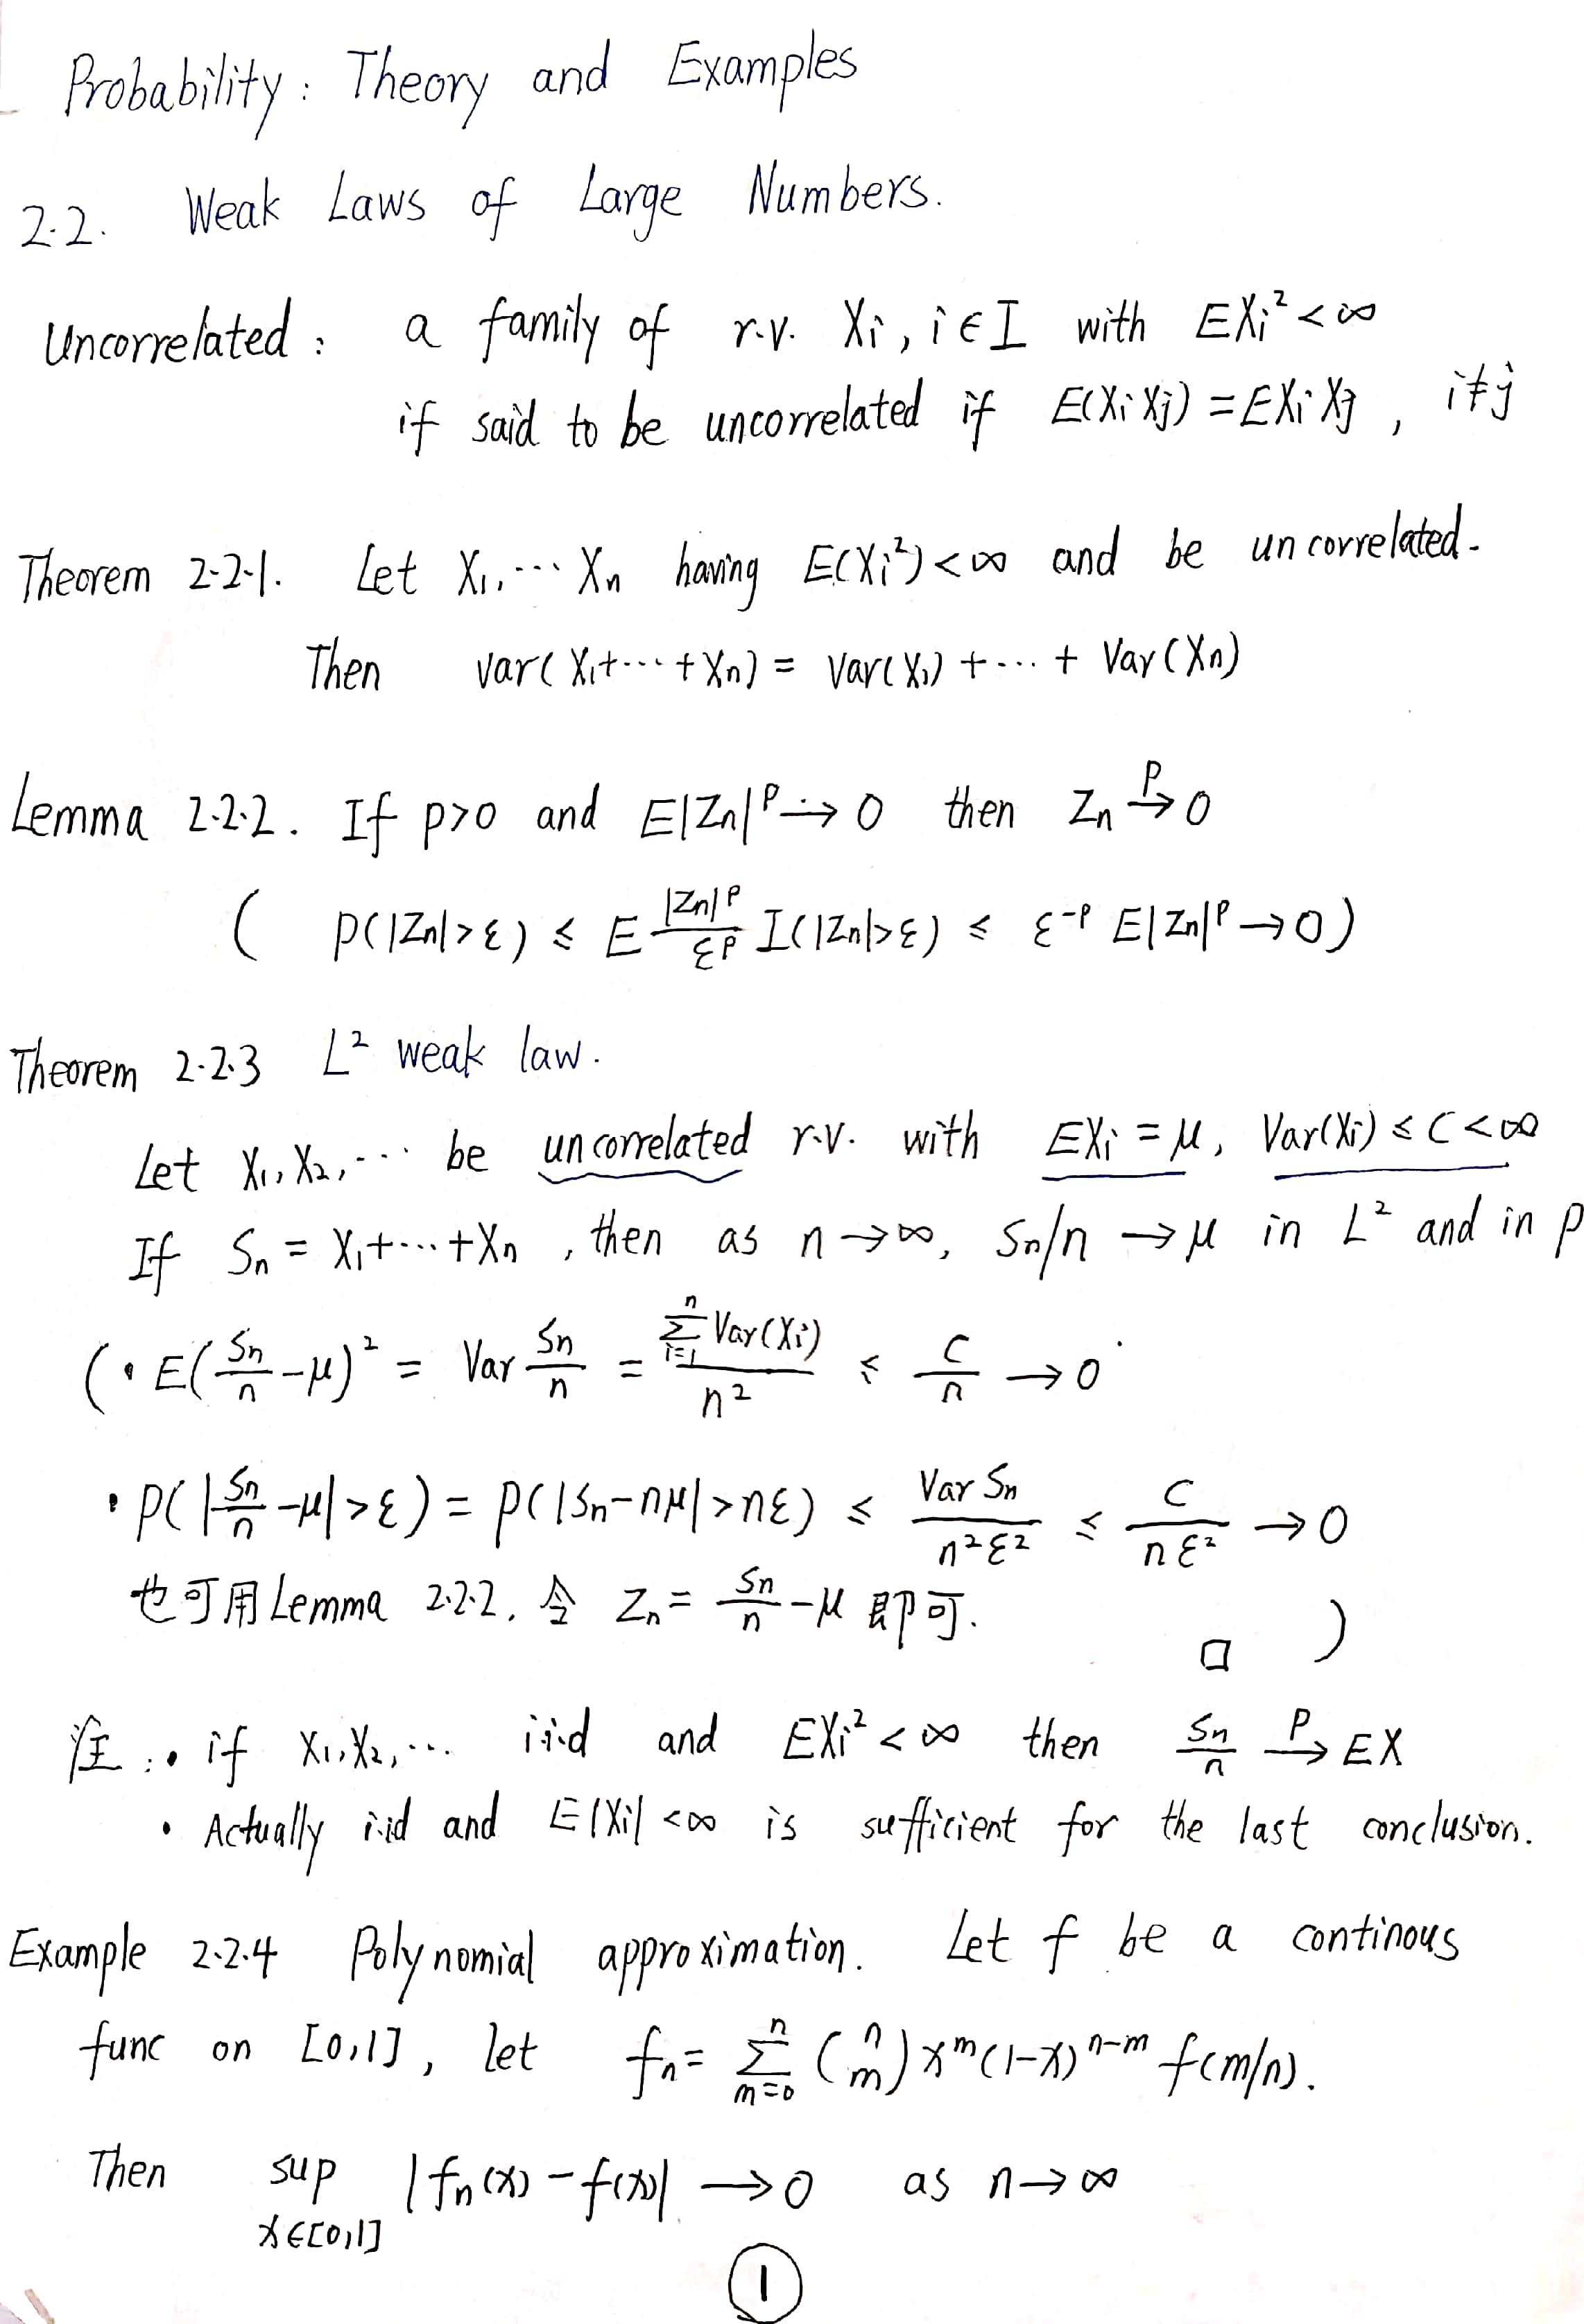 Probability: Theory and Examples
2.2. Weak Laws of Large Numbers.
Uncorrelated: a family of r.v. Xi, i∈I with EXi²<∞
if said to be uncorrelated if E(XiXj) = EXiXj, i≠j
Theorem 2.2.1. Let X₁,⋯Xn having E(Xi²)<∞ and be uncorrelated.
Then var(X₁+⋯+Xn) = var(X₁) +⋯+ Var(Xn)
Lemma 2.2.2. If p>0 and E|Zn|ᵖ → 0 then Zn →ᴾ 0
( P(|Zn|>ε) ≤ E |Zn|ᵖ/εᵖ I(|Zn|>ε) ≤ ε⁻ᵖ E|Zn|ᵖ → 0)
Theorem 2.2.3 L² weak law.
Let X₁, X₂, ⋯ be uncorrelated r.v. with EXi = μ, Var(Xi) ≤ C < ∞
If Sn = X₁+⋯+Xn, then as n→∞, Sn/n → μ in L² and in p
(• E(Sn/n − μ)² = Var Sn/n = ∑ⁿᵢ₌₁ Var(Xi) / n² ≤ C/n → 0
• P(|Sn/n − μ|>ε) = P(|Sn−nμ|>nε) ≤ Var Sn / n²ε² ≤ C / nε² → 0
也可用 Lemma 2.2.2. 令 Zn = Sn/n − μ 即可. □ )
注:• if X₁, X₂, ⋯ i.i.d and EXi² < ∞ then Sn/n →ᴾ EX
• Actually i.id and E|Xi| < ∞ is sufficient for the last conclusion.
Example 2.2.4 Polynomial approximation. Let f be a continous
func on [0,1], let fn = ∑ⁿₘ₌₀ (n m) xᵐ(1−x)ⁿ⁻ᵐ f(m/n).
Then sup x∈[0,1] |fn(x) − f(x)| → 0 as n→∞
①